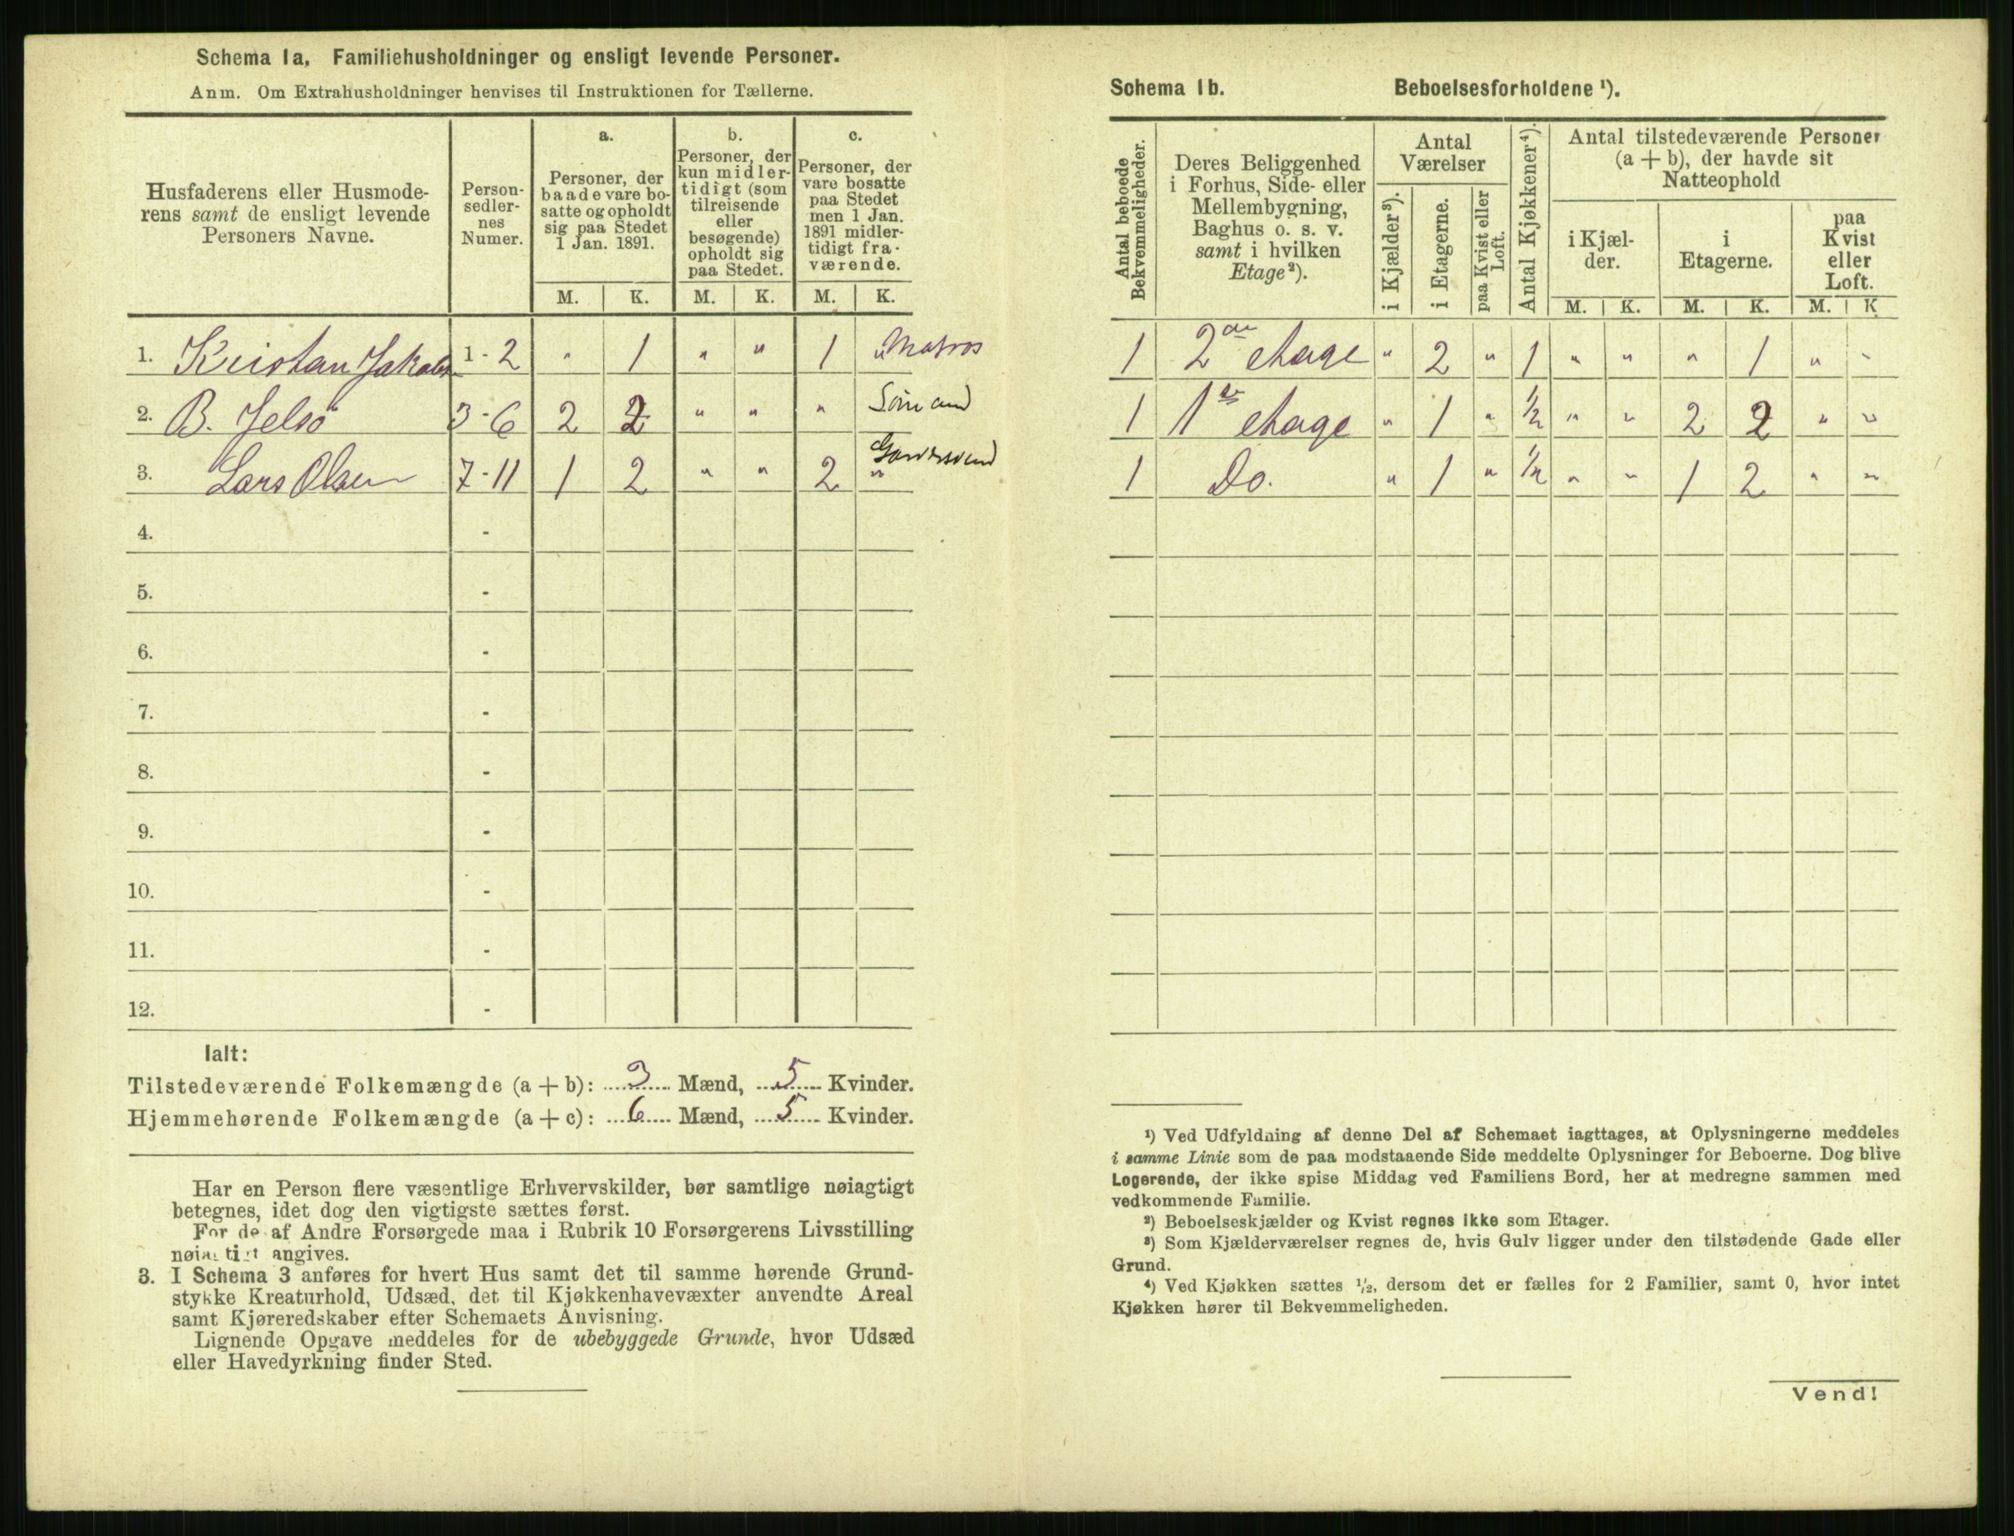 Schema 1a, Familiehusholdninger og ensligt levende Personer.
Anm. Om Extrahusholdninger henvises til Instruktionen for Tællerne.
Husfaderens eller Husmoderens samt de ensligt levende Personers Navne.
Personsedlernes Numer.
a.
Personer, der baade vare bosatte og opholdt sig paa Stedet 1 Jan. 1891.
b.
Personer, der kun midlertidigt (som tilreisende eller besøgende) opholdt sig paa Stedet.
c.
Personer, der vare bosatte paa Stedet men 1 Jan. 1891 midlertidigt fraværende.
M. K. M. K. M. K.
1. Kristan Jakobs 1 - 2 " 1 " " 1 " Matros
2. B. Jelsø 3 - 6 2 2 " " " Sømand
3. Lars Olsen 7 - 11 1 2 " " 2 "
4. -
5. -
6. -
7. -
8. -
9. -
10. -
11. -
12. -
Ialt:
Tilstedeværende Folkemængde (a + b): 3 Mænd, 5 Kvinder.
Hjemmehørende Folkemængde (a + c): 6 Mænd, 5 Kvinder.
Har en Person flere væsentlige Erhvervskilder, bør samtlige nøiagtigt
betegnes, idet dog den vigtigste sættes først.
For de af Andre Forsørgede maa i Rubrik 10 Forsørgerens Livsstilling
nøiagtigt angives.
3. I Schema 3 anføres for hvert Hus samt det til samme hørende Grund-
stykke Kreaturhold, Udsæd, det til Kjøkkenhavevæxter anvendte Areal
samt Kjøreredskaber efter Schemaets Anvisning.
Lignende Opgave meddeles for de ubebyggede Grunde, hvor Udsæd
eller Havedyrkning finder Sted.
Schema 1b. Beboelsesforholdene ¹).
Antal beboede Bekvemmeligheder.
Deres Beliggenhed i Forhus, Side- eller Mellembygning, Baghus o. s. v. samt i hvilken Etage ²).
Antal Værelser
i Kjælder ³).
i Etagerne.
paa Kvist eller Loft.
Antal Kjøkkener ⁴).
Antal tilstedeværende Personer (a + b), der havde sit Natteophold
i Kjælder.
i Etagerne.
paa Kvist eller Loft.
M. K. M. K. M. K
1 2den etage " 2 " 1 " " " 1 " "
1 1ste etage " 1 " 1/2 " " 2 2 " "
1 Do. " 1 " 1/2 " " 1 2 " "
¹) Ved Udfyldning af denne Del af Schemaet iagttages, at Oplysningerne meddeles
i samme Linie som de paa modstaaende Side meddelte Oplysninger for Beboerne. Dog blive
Logerende, der ikke spise Middag ved Familiens Bord, her at medregne sammen med
vedkommende Familie.
²) Beboelseskjælder og Kvist regnes ikke som Etager.
³) Som Kjælderværelser regnes de, hvis Gulv ligger under den tilstødende Gade eller
Grund.
⁴) Ved Kjøkken sættes 1/2, dersom det er fælles for 2 Familier, samt 0, hvor intet
Kjøkken hører til Bekvemmeligheden.
Vend!